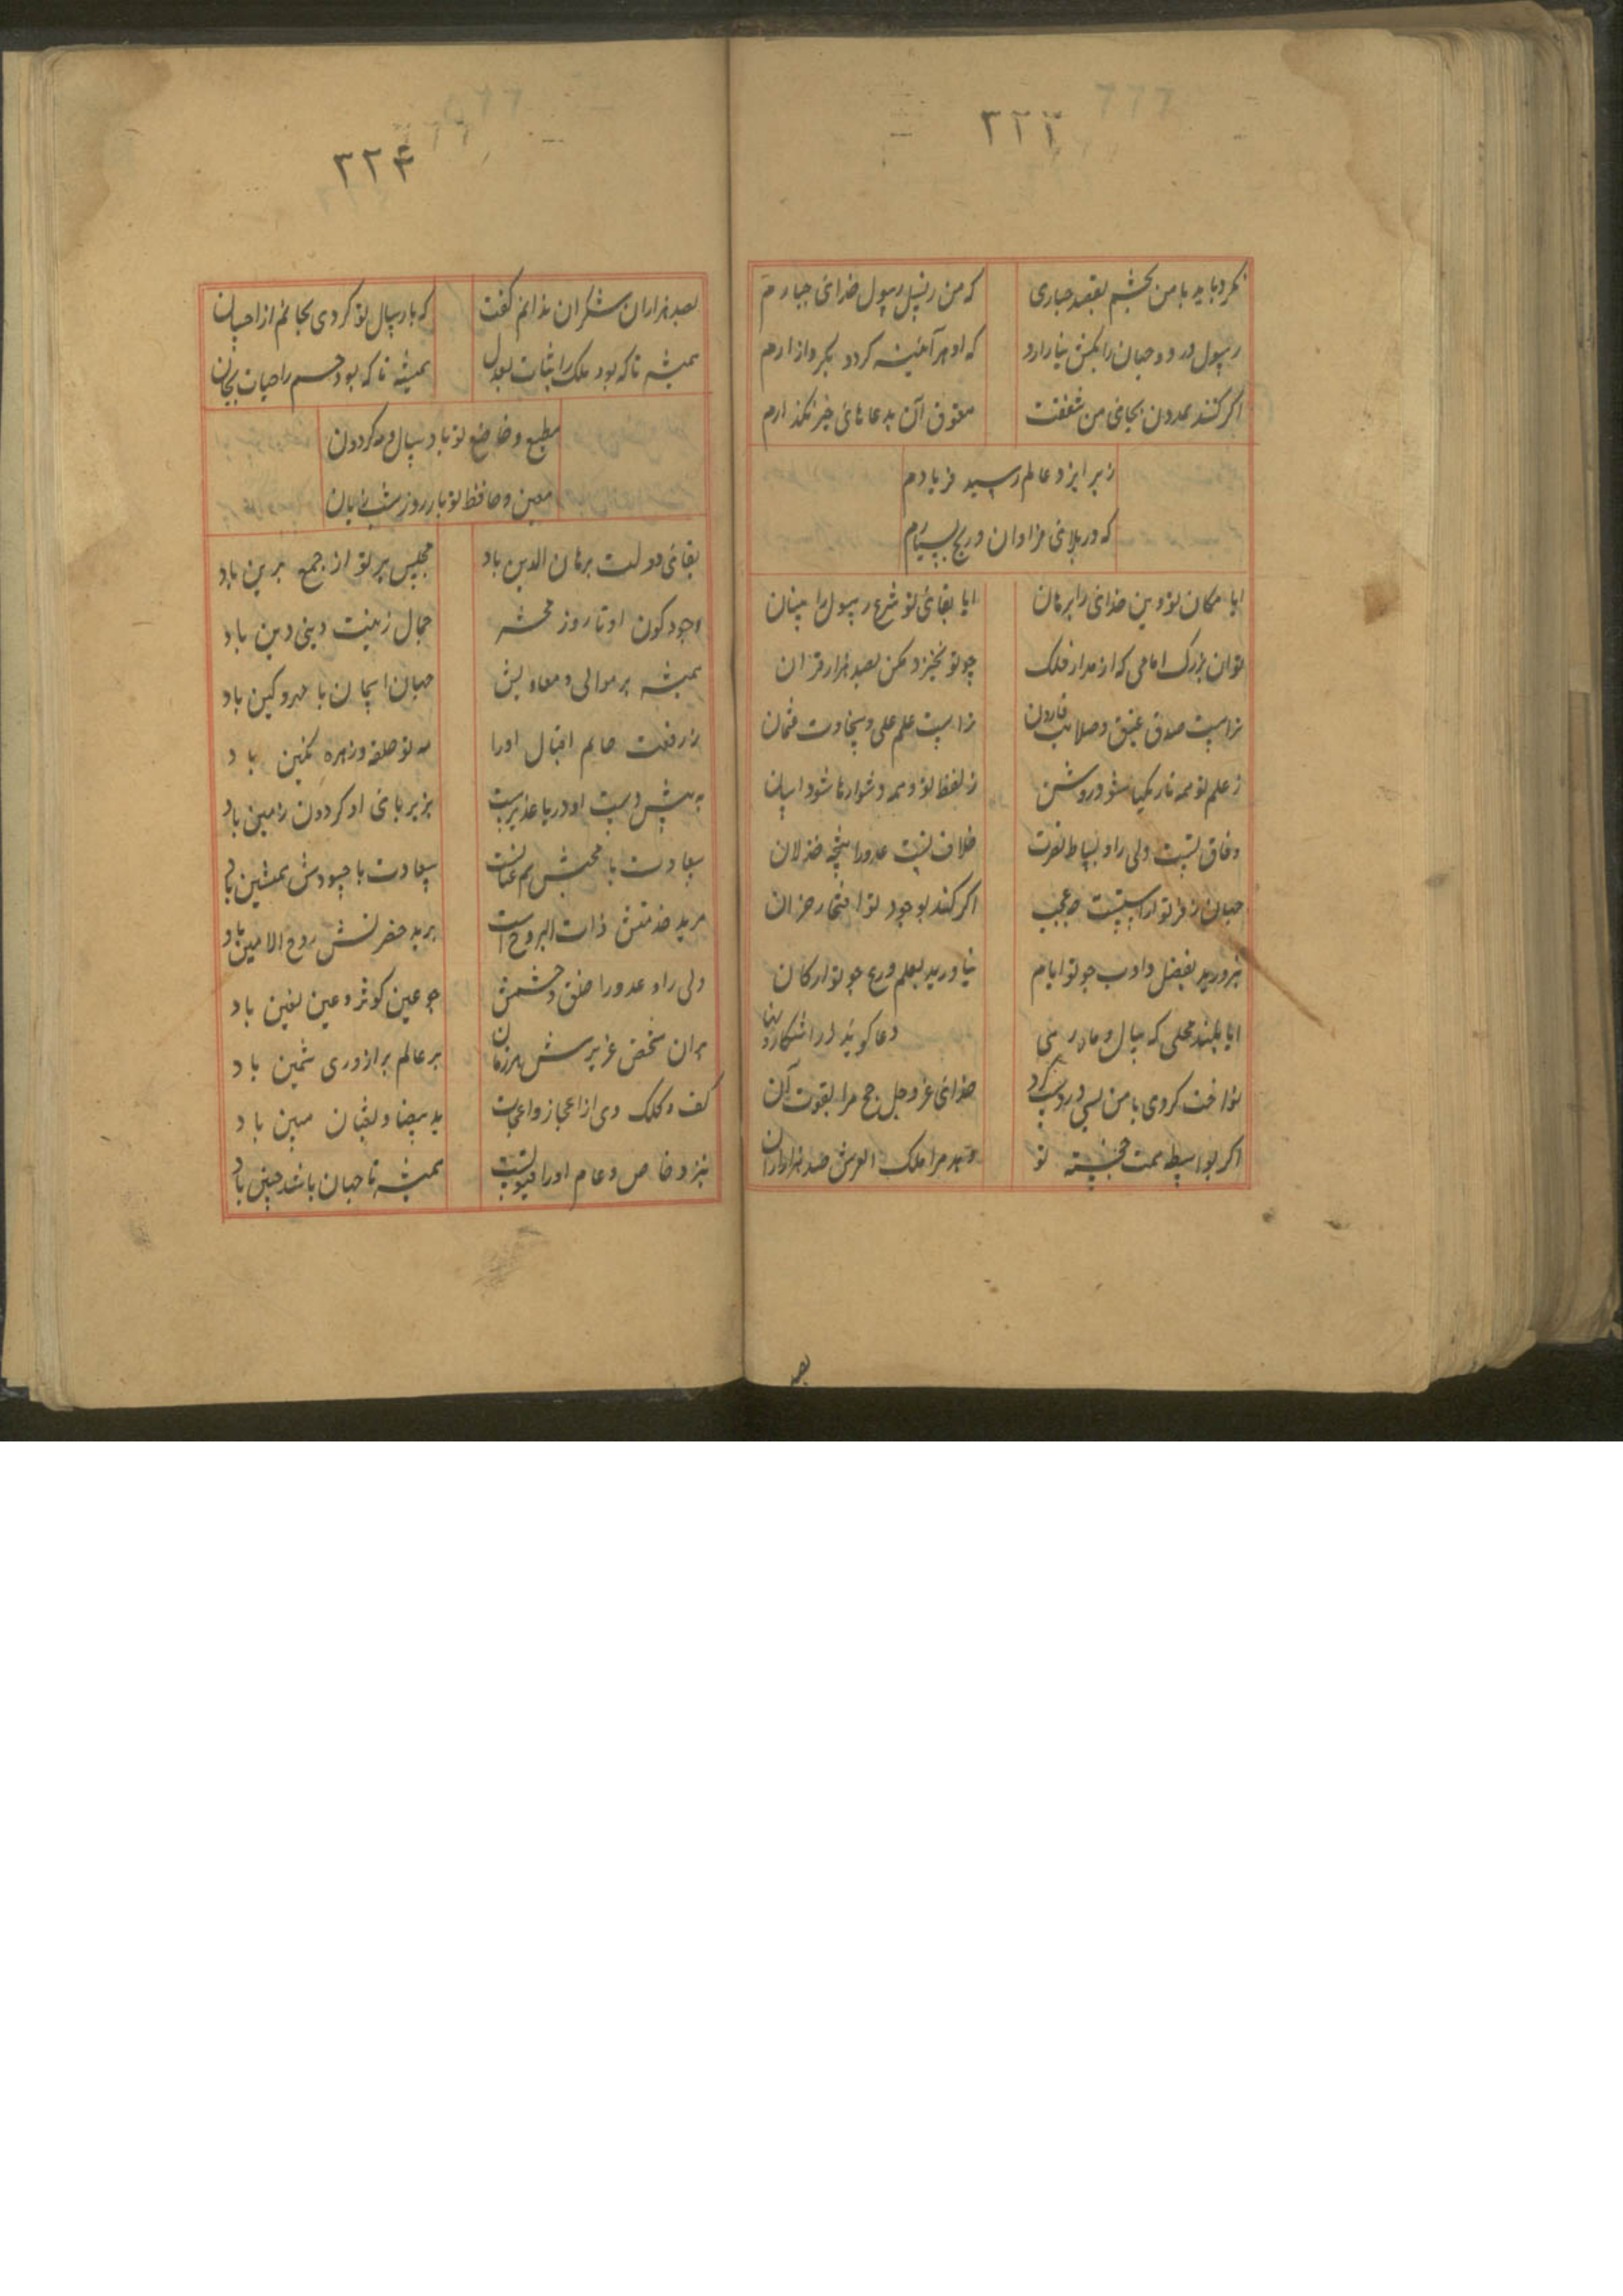 ۳۲۳
نکرد باید با من بخشم بقصد جباری
که من ز نسل رسول خدای جبارم
رسول در دو جهان را بکش نیازارد
که او هر آینه کردد بکر و ازارم
اکر کنند عددون بجای من شفقت
حقوق آن بدعاهای خیر نکذارم
زبر ایزد عالم رسید فریادم
که در بلای فراوان و رنج بسیارم
ایا مکان تو دین خدای را برهان
ایا بقای تو شرع رسول را بنیان
توان بزرک امامی که از مدار فلک
چو تو نخیزد ممکن بصد هزار قران
تراست صدق عتیق و صلابت فاروق
تراست علم علی و سخاوت عثمان
ز علم تو همه تاریکیها شود روشن
ز لفظ تو همه دشوارها شود اسان
وفاق تست ولی را و بساط نصرت
خلاف تست عدو را نتیجه خذلان
جهان ز فر تو اراستست چه عجب
اکر کند بوجود تو افتخار جهان
نپرورید بفضل و ادب چو تو ایام
نیاورید بعلم و ورع چو تو ارکان
ایا بلند محلی که سال و ماه
دعا کویند در اشکار و نهان
نواخت کردی با من بسی و در
خدای عز و جل مرا بقوت آن
اکر بواسطه همت خجسته تو
دهد مرا ملک العرش صد هزار
بصد
۳۲۴
بصد هزاران شکر ان ندانم کفت
که بارسال تو کردی بجانم از احسان
همیشه تا که بود ملک را ثبات بعدل
همیشه تا که بود جسم را حیات بجان
مطیع و خاضع تو باد سال و مه کردون
معین و حافظ تو باد روز و شب یزدان
بقای دولت برهان الدین باد
مجلس پر تو از جمع برین باد
وجود کون او تا روز محشر
جمال زینت دینی و دین باد
همیشه بر موالی و معاویش
جهان ایجان با مهر و کین باد
ز رفعت خاتم اقبال او را
مه نو حلقه و زهره نکین باد
به پیش دست او دریا غدیرست
بزیر پای او کردون زمین باد
سعادت با محبش هم عنانست
سعادت با حسودش همنشین باد
مرید خدمتش ذات البروج است
برید حضرتش روح الامین باد
ولی را و عدو را خلق و خشمش
چو عین کوثر و عین یقین باد
بران شخص عزیزش هر زمان
بر عالم برازوری ثمین باد
کف و کلک وی از اعجاز و اعجب
ید بیضا و ثعبان مبین باد
بنزد خاص و عام او را قبولست
همیشه تا جهان باشد چنین باد